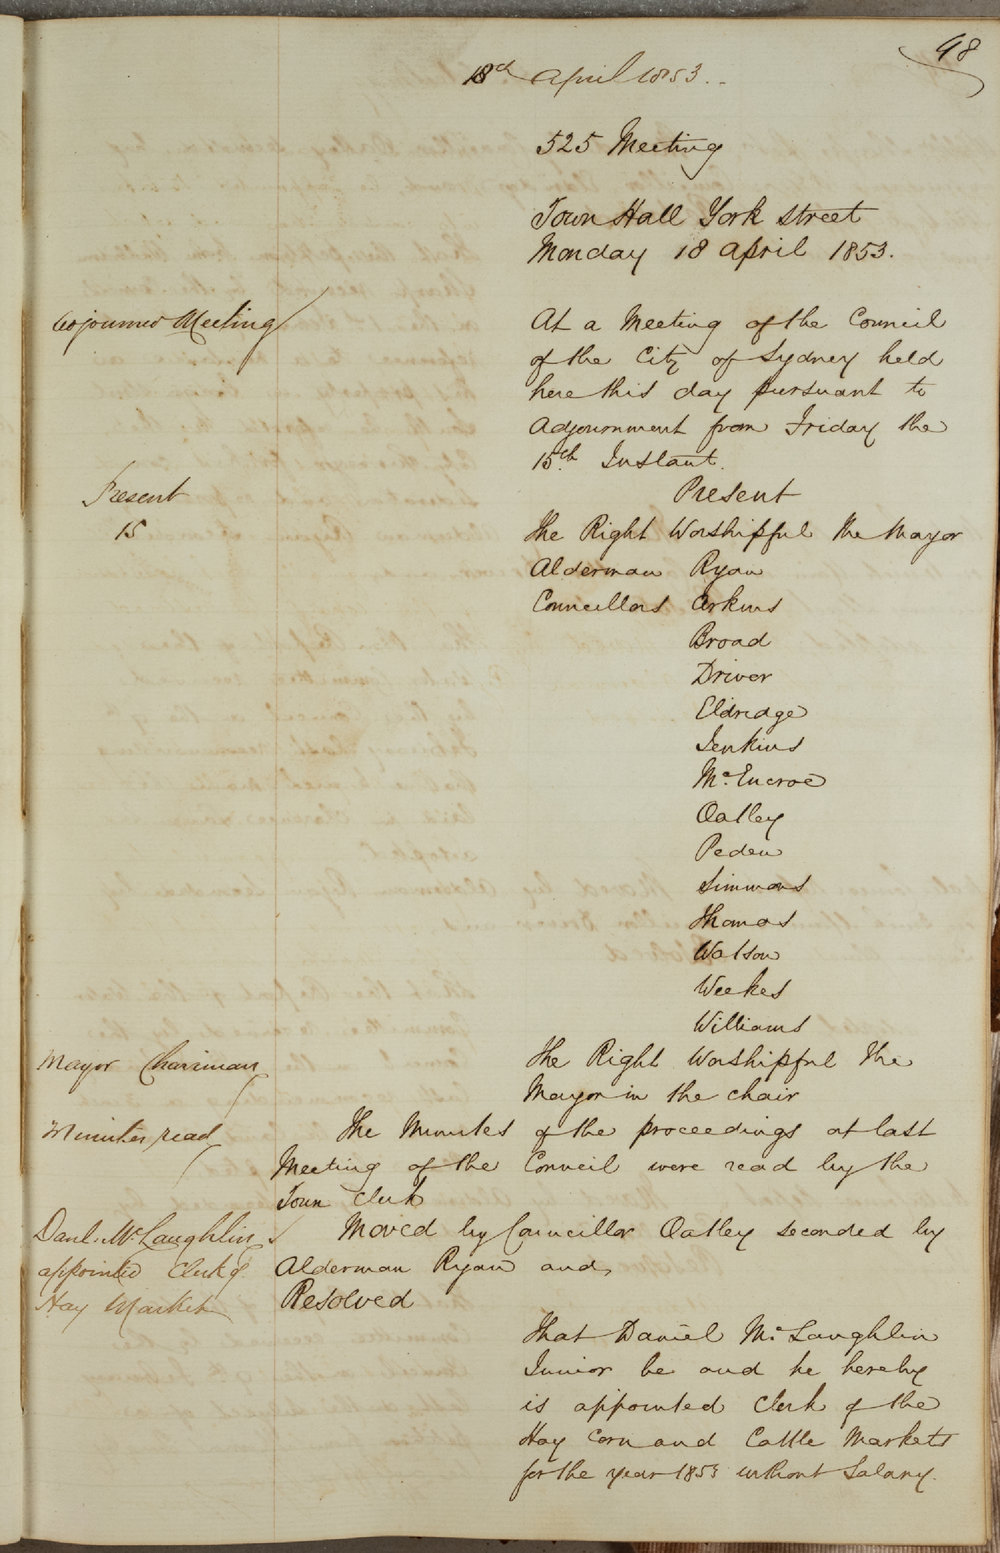 98
18th April 1853.
525 Meeting
Town Hall York Street
Monday 18 April 1853.
Adjourned Meeting
At a Meeting of the Council
of the City of Sydney held
here this day pursuant to
Adjournment from Friday the
15th Instant.
Present
15
Present
The Right Worshipful the Mayor
Alderman Ryan
Councillors Arkins
Broad
Driver
Eldridge
Jenkins
Mc. Encroe
Oatley
Peden
Simmons
Thomas
Watson
Weekes
Williams
Mayor Chairman
The Right Worshipful The
Mayor in the chair
Minutes read
The Minutes of the proceedings at last
Meeting of the Council were read by the
Town Clerk
Danl. McLaughlin
appointed Clerk of
Hay Market
Moved by Councillor Oatley seconded by
Alderman Ryan and
Resolved
That Daniel Mc. Laughlin
Junior be and he hereby
is appointed Clerk of the
Hay Corn and Cattle Markets
for the year 1853 without Salary.